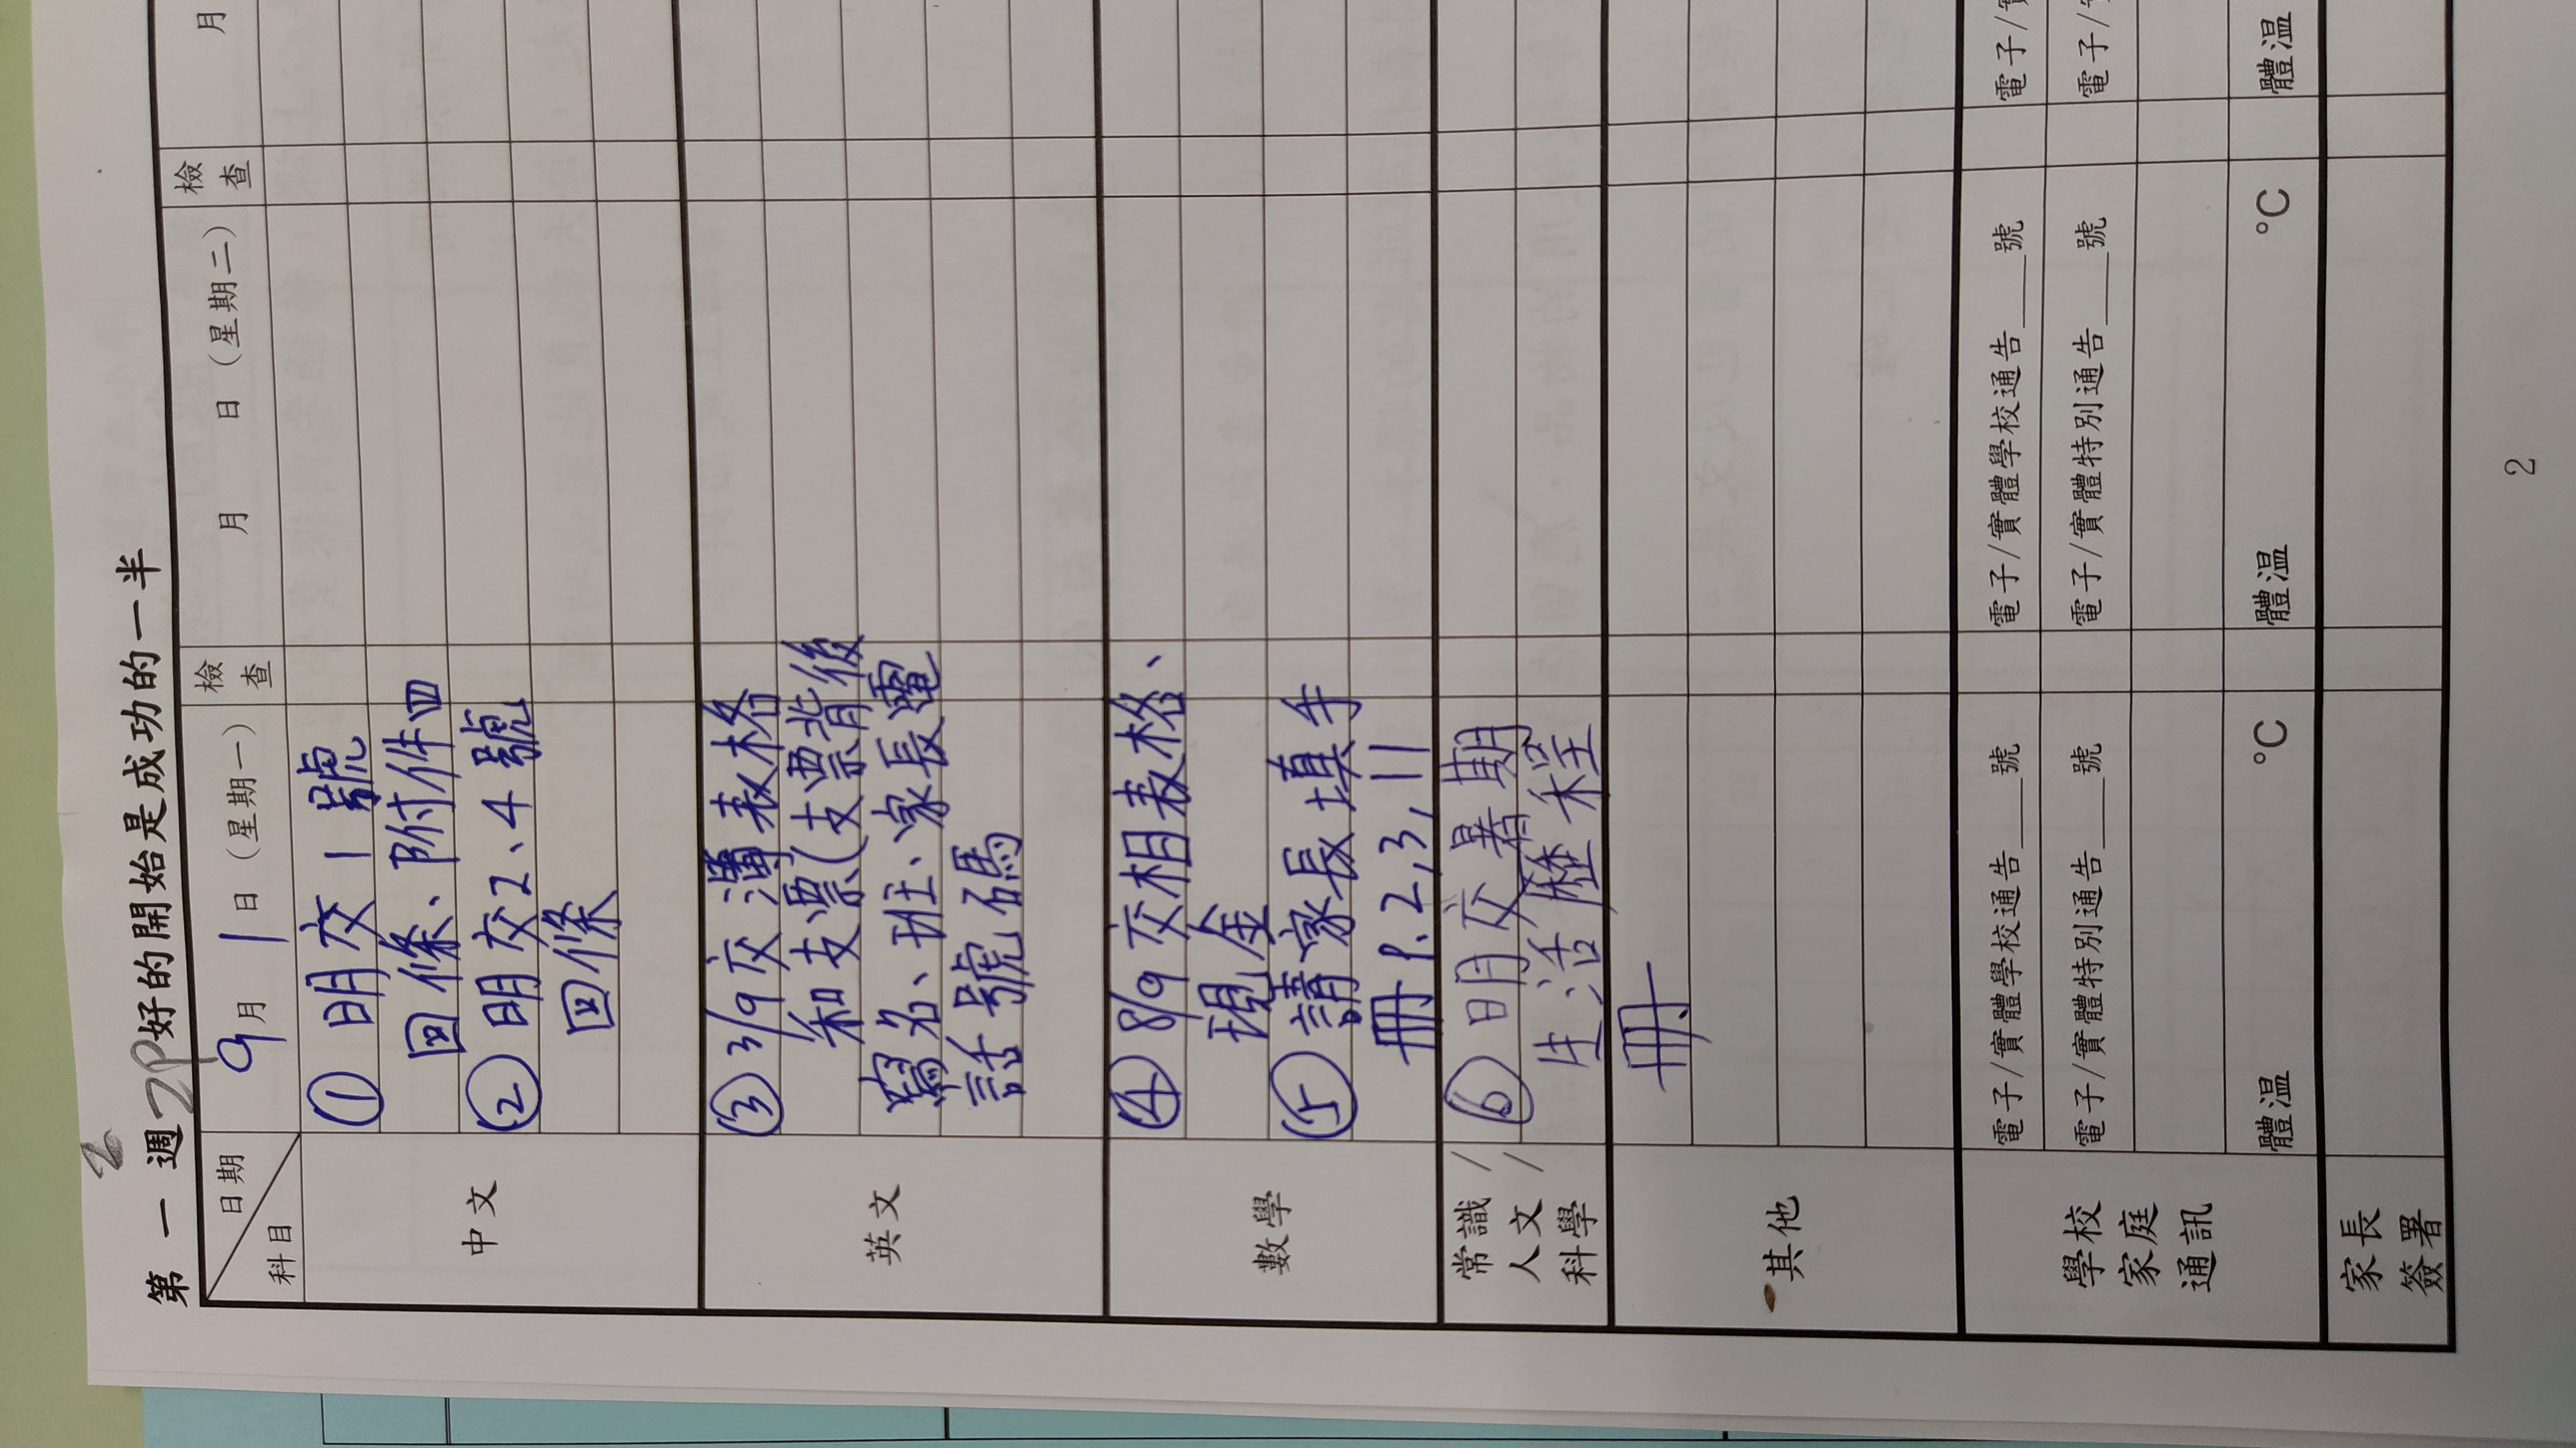 第一週 好的開始是成功的一半
2
2P
日期
科目
9月1日（星期一）
檢查
月 日（星期二）
檢查
月
中文
① 明交1號
回條、附件四
② 明交2、4號
回條
英文
③ 3/9交簿表格
和支票(支票背後
寫名、班、家長電
話號碼
數學
④ 8/9交相表格、
現金
⑤ 請家長填手
冊P.2,3,11
常識/
人文/
科學
⑥ 明交暑期
生活歷程
冊
其他
學校
家庭
通訊
電子/實體學校通告___號
電子/實體特別通告___號
體溫 °C
電子/實體學校通告___號
電子/實體特別通告___號
體溫 °C
電子/
電子/
體溫
家長
簽署
2